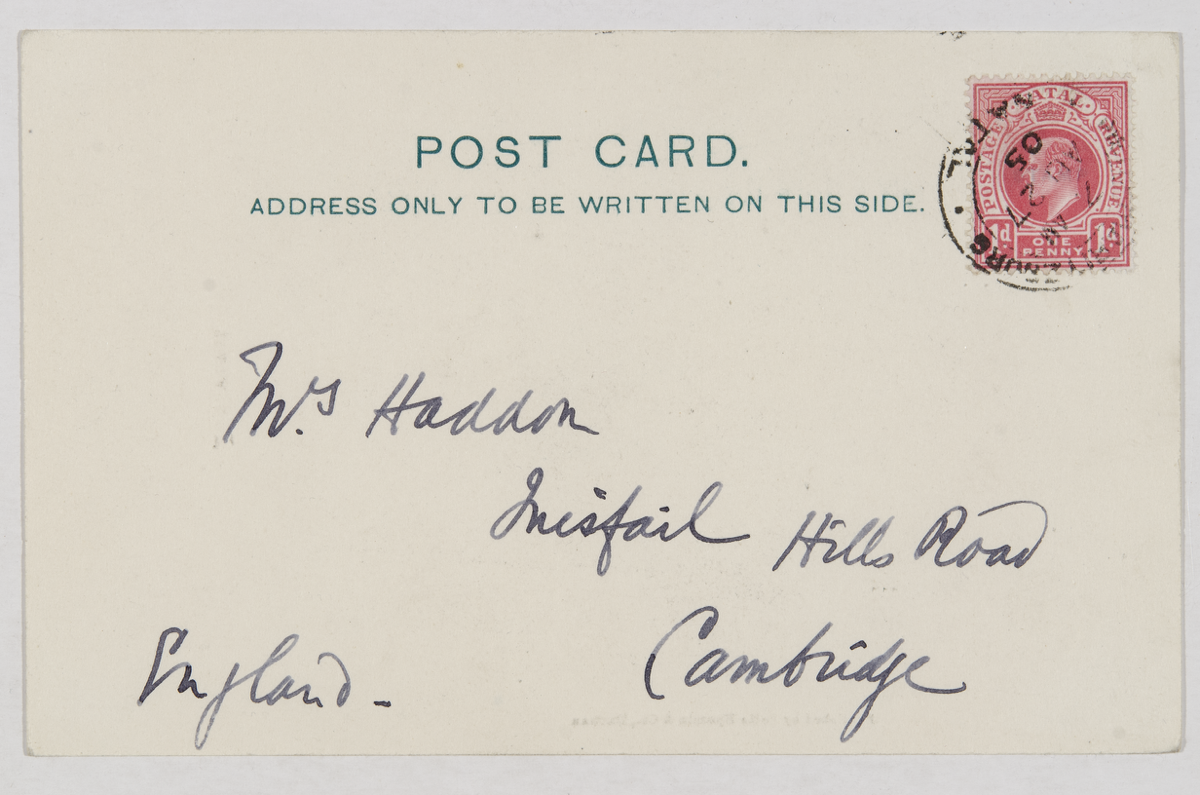 POST CARD.
ADDRESS ONLY TO BE WRITTEN ON THIS SIDE.
NATAL
POSTAGE REVENUE
1d ONE PENNY 1d
NATAL
05
27
Mrs. Haddon
Inisfail Hills Road
Cambridge
England.